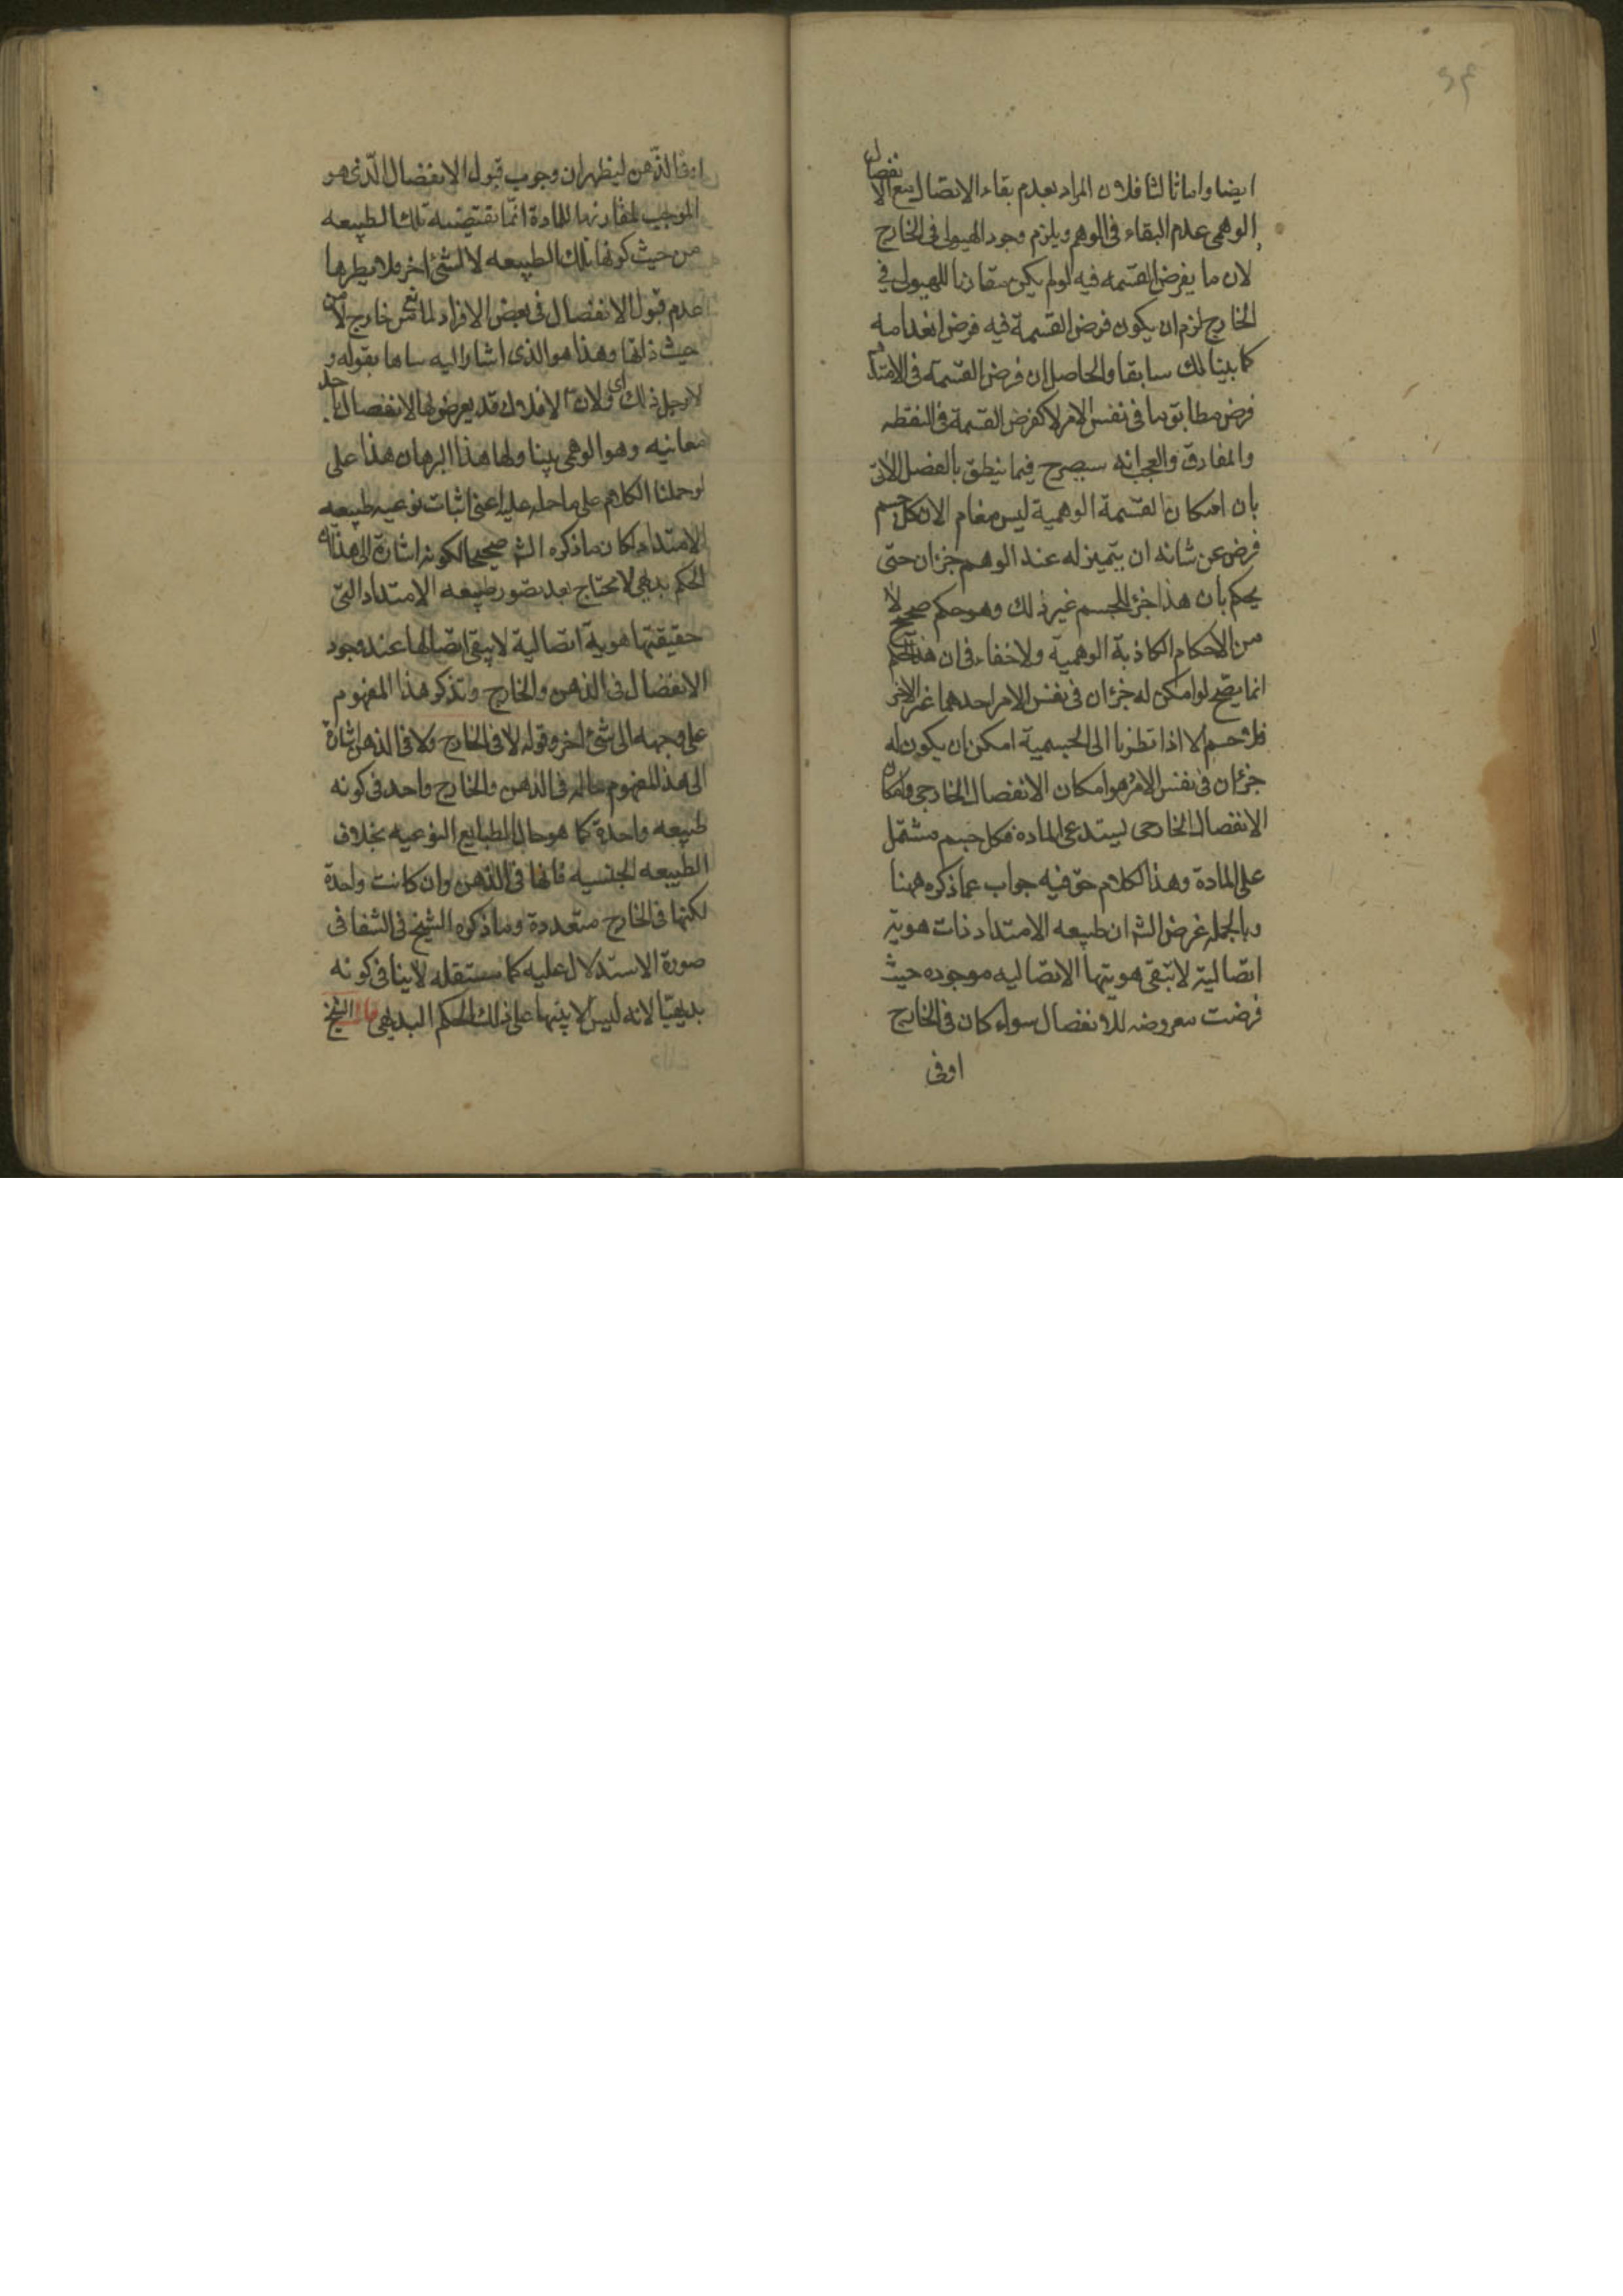 ايضا واما ثالثا فلان المراد بعدم بقاء الاتصال مع الانفصال
الوهمى عدم البقاء فى الوهم ويلزم وجود الهيولى فى الخارج
لان ما يفرض القسمه فيه لو لم يكن مقارنا للهيولى في
الخارج لزم ان يكون فرض القسمة فيه فرض انعدامه
كما بينا لك سابقا والحاصل ان فرض القسمة فى الامتداد
فرض مطابق ما فى نفس الامر لا كفرض القسمة فى النقطه
والمفارق والعجب انه سيصرح فيما ينطق بالفصل الاتى
بان امكان القسمة الوهمية ليس معام الا ان كل جسم
فرض عن شانه ان يتميز له عند الوهم جزءان حتى
يحكم بان هذا جزء للجسم غير ذلك وهو حكم صحيح لا
من الاحكام الكاذبة الوهمية ولا خفاء فى ان هذا الحكم
انما يصح لو امكن له جزءان فى نفس الامر احدهما غير الاخر
فلا جسم الا اذا نظرنا الى الجسمية امكن ان يكون له
جزءان فى نفس الامر وهو امكان الانفصال الخارجى وامكان
الانفصال الخارجى يستدعى الماده فكل جسم مشتمل
على المادة وهذا الكلام حق فيه جواب عما ذكره ههنا
وبالجمله غرض الش ان طبيعه الامتداد ذات هوية
اتصالية لا تبقى هويتها الاتصاليه موجوده حيث
فرضت معروضه للانفصال سواء كان فى الخارج
اوفى
اوفى الذهن ليظهر ان وجوب قبول الانفصال الذى هو
الموجب لمقارنها للمادة انما تقتضيه تلك الطبيعه
من حيث كونها تلك الطبيعه لا لشئ اخر فلا يضرها
عدم قبول الانفصال فى بعض الافراد لمانع من خارج لا من
حيث ذاتها وهذا هو الذى اشار اليه سابقا بقوله و
لاجل ذلك اى ولان الافلاك قد يعرض لها الانفصال باحد
معانيه وهو الوهمى يتناولها هذا البرهان هذا على
لو حملنا الكلام على ما حمله عليه اعنى اثبات نوعيه طبيعه
الامتداد لكان ما ذكره الش صحيحا لكونه اشارة الى هذا
الحكم بديهى لا يحتاج بعد تصور طبيعه الامتداد التى
حقيقتها هوية اتصالية لا يبقى اتصالها عند وجود
الانفصال فى الذهن والخارج وتذكر هذا المفهوم
على وجهه الى شئ اخر وقوله لا فى الخارج ولا فى الذهن اشارة
الى هذا المفهوم حاله فى الذهن والخارج واحد فى كونه
طبيعه واحدة كما هو حال الطبايع النوعيه بخلاف
الطبيعه الجنسيه فانها فى الذهن وان كانت واحدة
لكنها فى الخارج متعددة وما ذكره الشيخ فى الشفا فى
صورة الاستدلال عليه كما سننقله لا ينافى كونه
بديهيا لانه ليس الا تنبيها على ذلك الحكم البديهى قال الشيخ